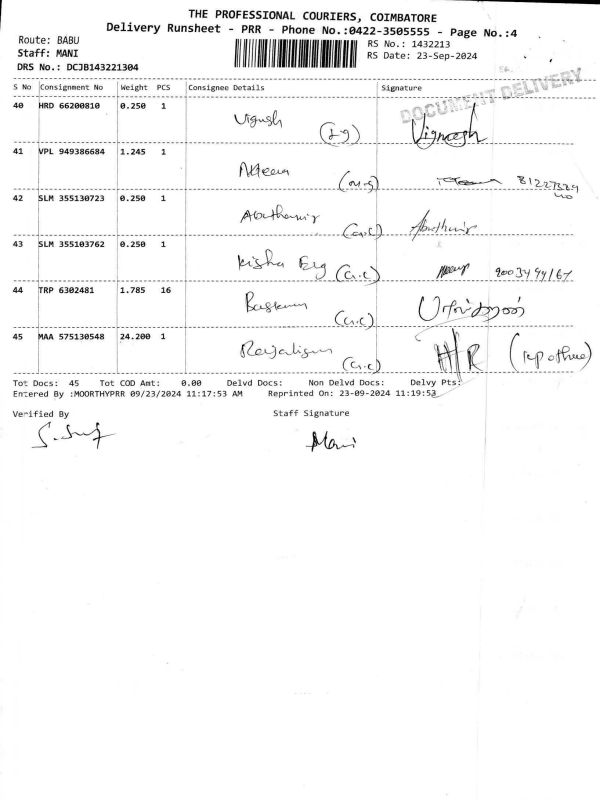 THE PROFESSIONAL COURIERS, COIMBATORE
Delivery Runsheet - PRR - Phone No.:0422-3505555 - Page No.:4
Route: BABU
Staff: MANI
DRS No.: DCJB143221304
RS No.: 1432213
RS Date: 23-Sep-2024
S No Consignment No Weight PCS Consignee Details Signature
DOCUMENT DELIVERY
40 HRD 66200810 0.250 1 Vignesh Vignesh
41 VPL 949386684 1.245 1
42 SLM 355130723 0.250 1 (G.C)
43 SLM 355103762 0.250 1 Kisha Eng (G.C)
44 TRP 6302481 1.785 16 (G.C)
45 MAA 575130548 24.200 1 (G.C)
Tot Docs: 45 Tot COD Amt: 0.00 Delvd Docs: Non Delvd Docs: Delvy Pts:
Entered By :MOORTHYPRR 09/23/2024 11:17:53 AM Reprinted On: 23-09-2024 11:19:53
Verified By Staff Signature
Mani